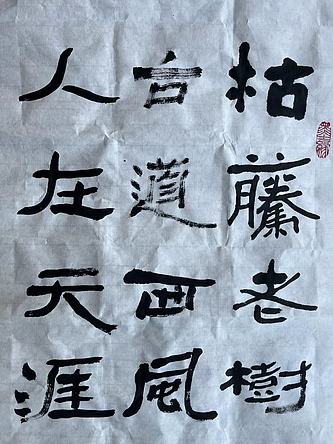 枯藤老樹
古道西風
人在天涯